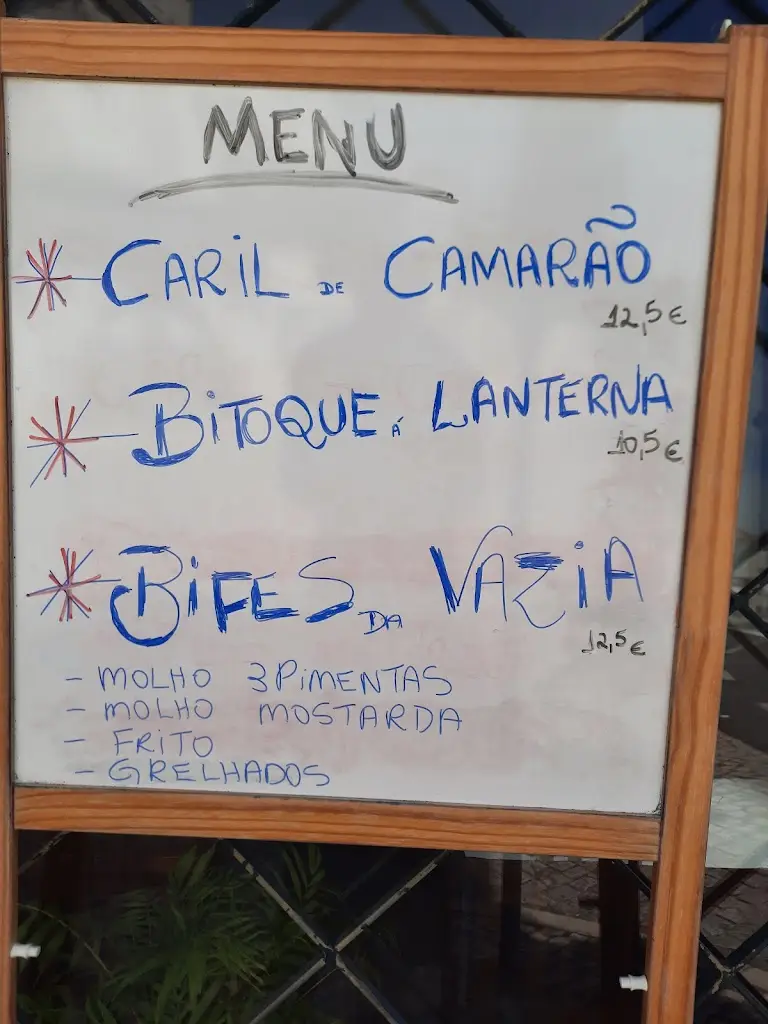 MENU
CARIL DE CAMARÃO
12,5€
BITOQUE Á LANTERNA
10,5€
BIFES DA VAZIA
12,5€
- MOLHO 3 PIMENTAS
- MOLHO MOSTARDA
- FRITO
- GRELHADOS